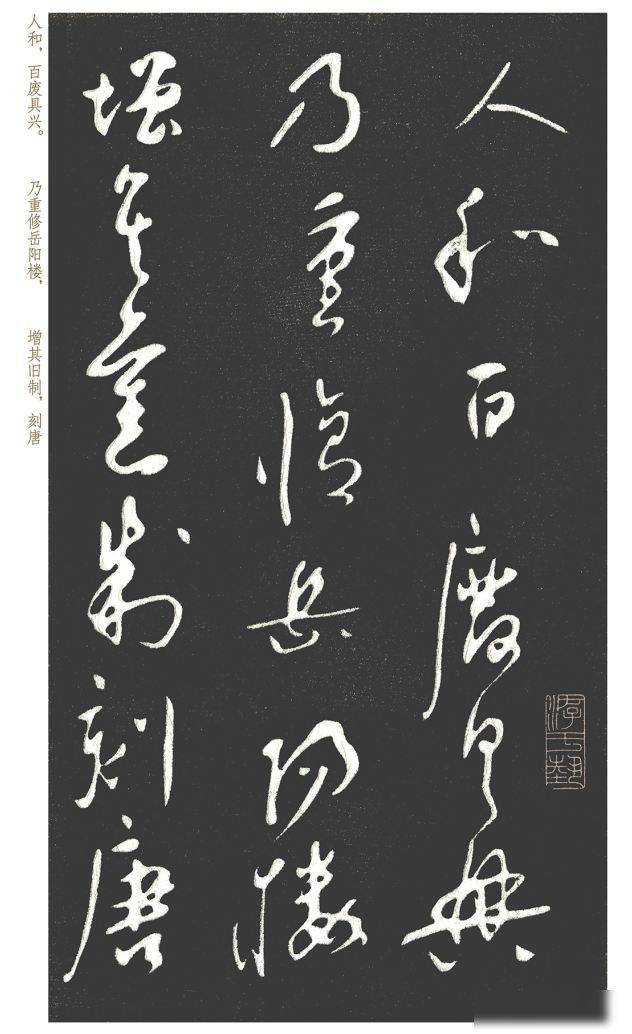 人和，百废具兴。
乃重修岳阳楼，
增其旧制，刻唐
人和百廢具興
乃重修岳陽樓
增其舊制刻唐